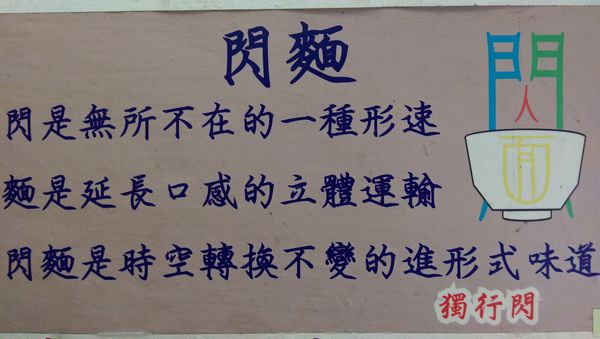 閃麵
閃是無所不在的一種形速
麵是延長口感的立體運輸
閃麵是時空轉換不變的進形式味道
獨行閃